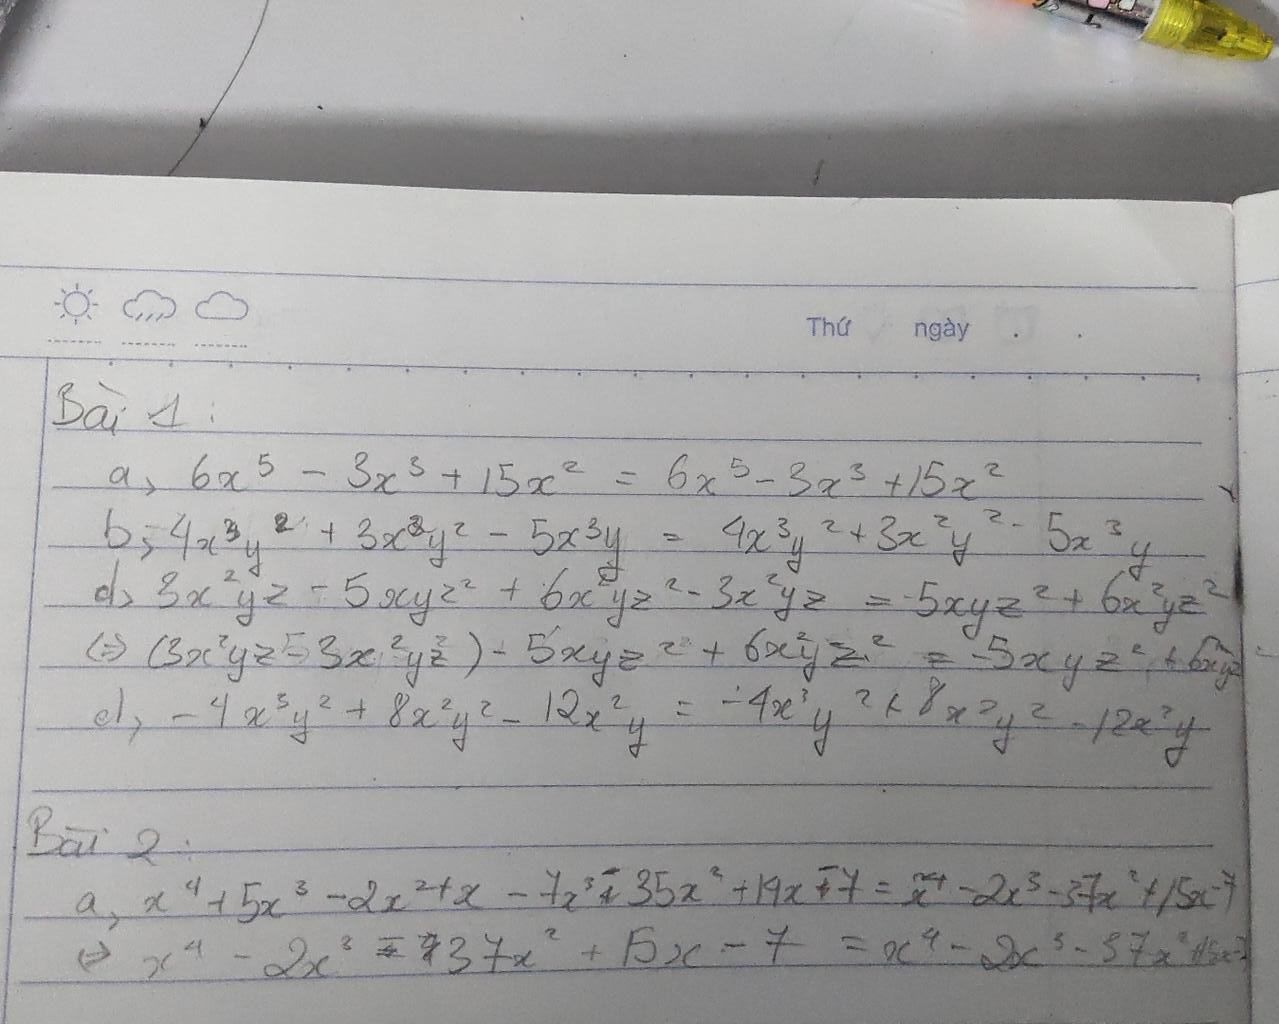 Thứ ngày . .
Bài 1:
a, 6x⁵ - 3x³ + 15x² = 6x⁵ - 3x³ + 15x²
b, -4x³y² + 3x²y² - 5x³y = 4x³y² + 3x²y² - 5x³y
d, 3x²yz - 5xyz² + 6x²yz² - 3x²yz = -5xyz² + 6x²yz²
(=) (3x²yz - 3x²yz) - 5xyz² + 6x²yz² = -5xyz² + 6x²yz²
d, -4x³y² + 8x²y² - 12x²y = -4x³y² + 8x²y² - 12x²y
Bài 2:
a, x⁴ + 5x³ - 2x² + x - 7x³ - 35x² + 14x - 7 = x⁴ - 2x³ - 37x² + 15x - 7
(=) x⁴ - 2x³ - 37x² + 15x - 7 = x⁴ - 2x³ - 37x² + 15x - 7